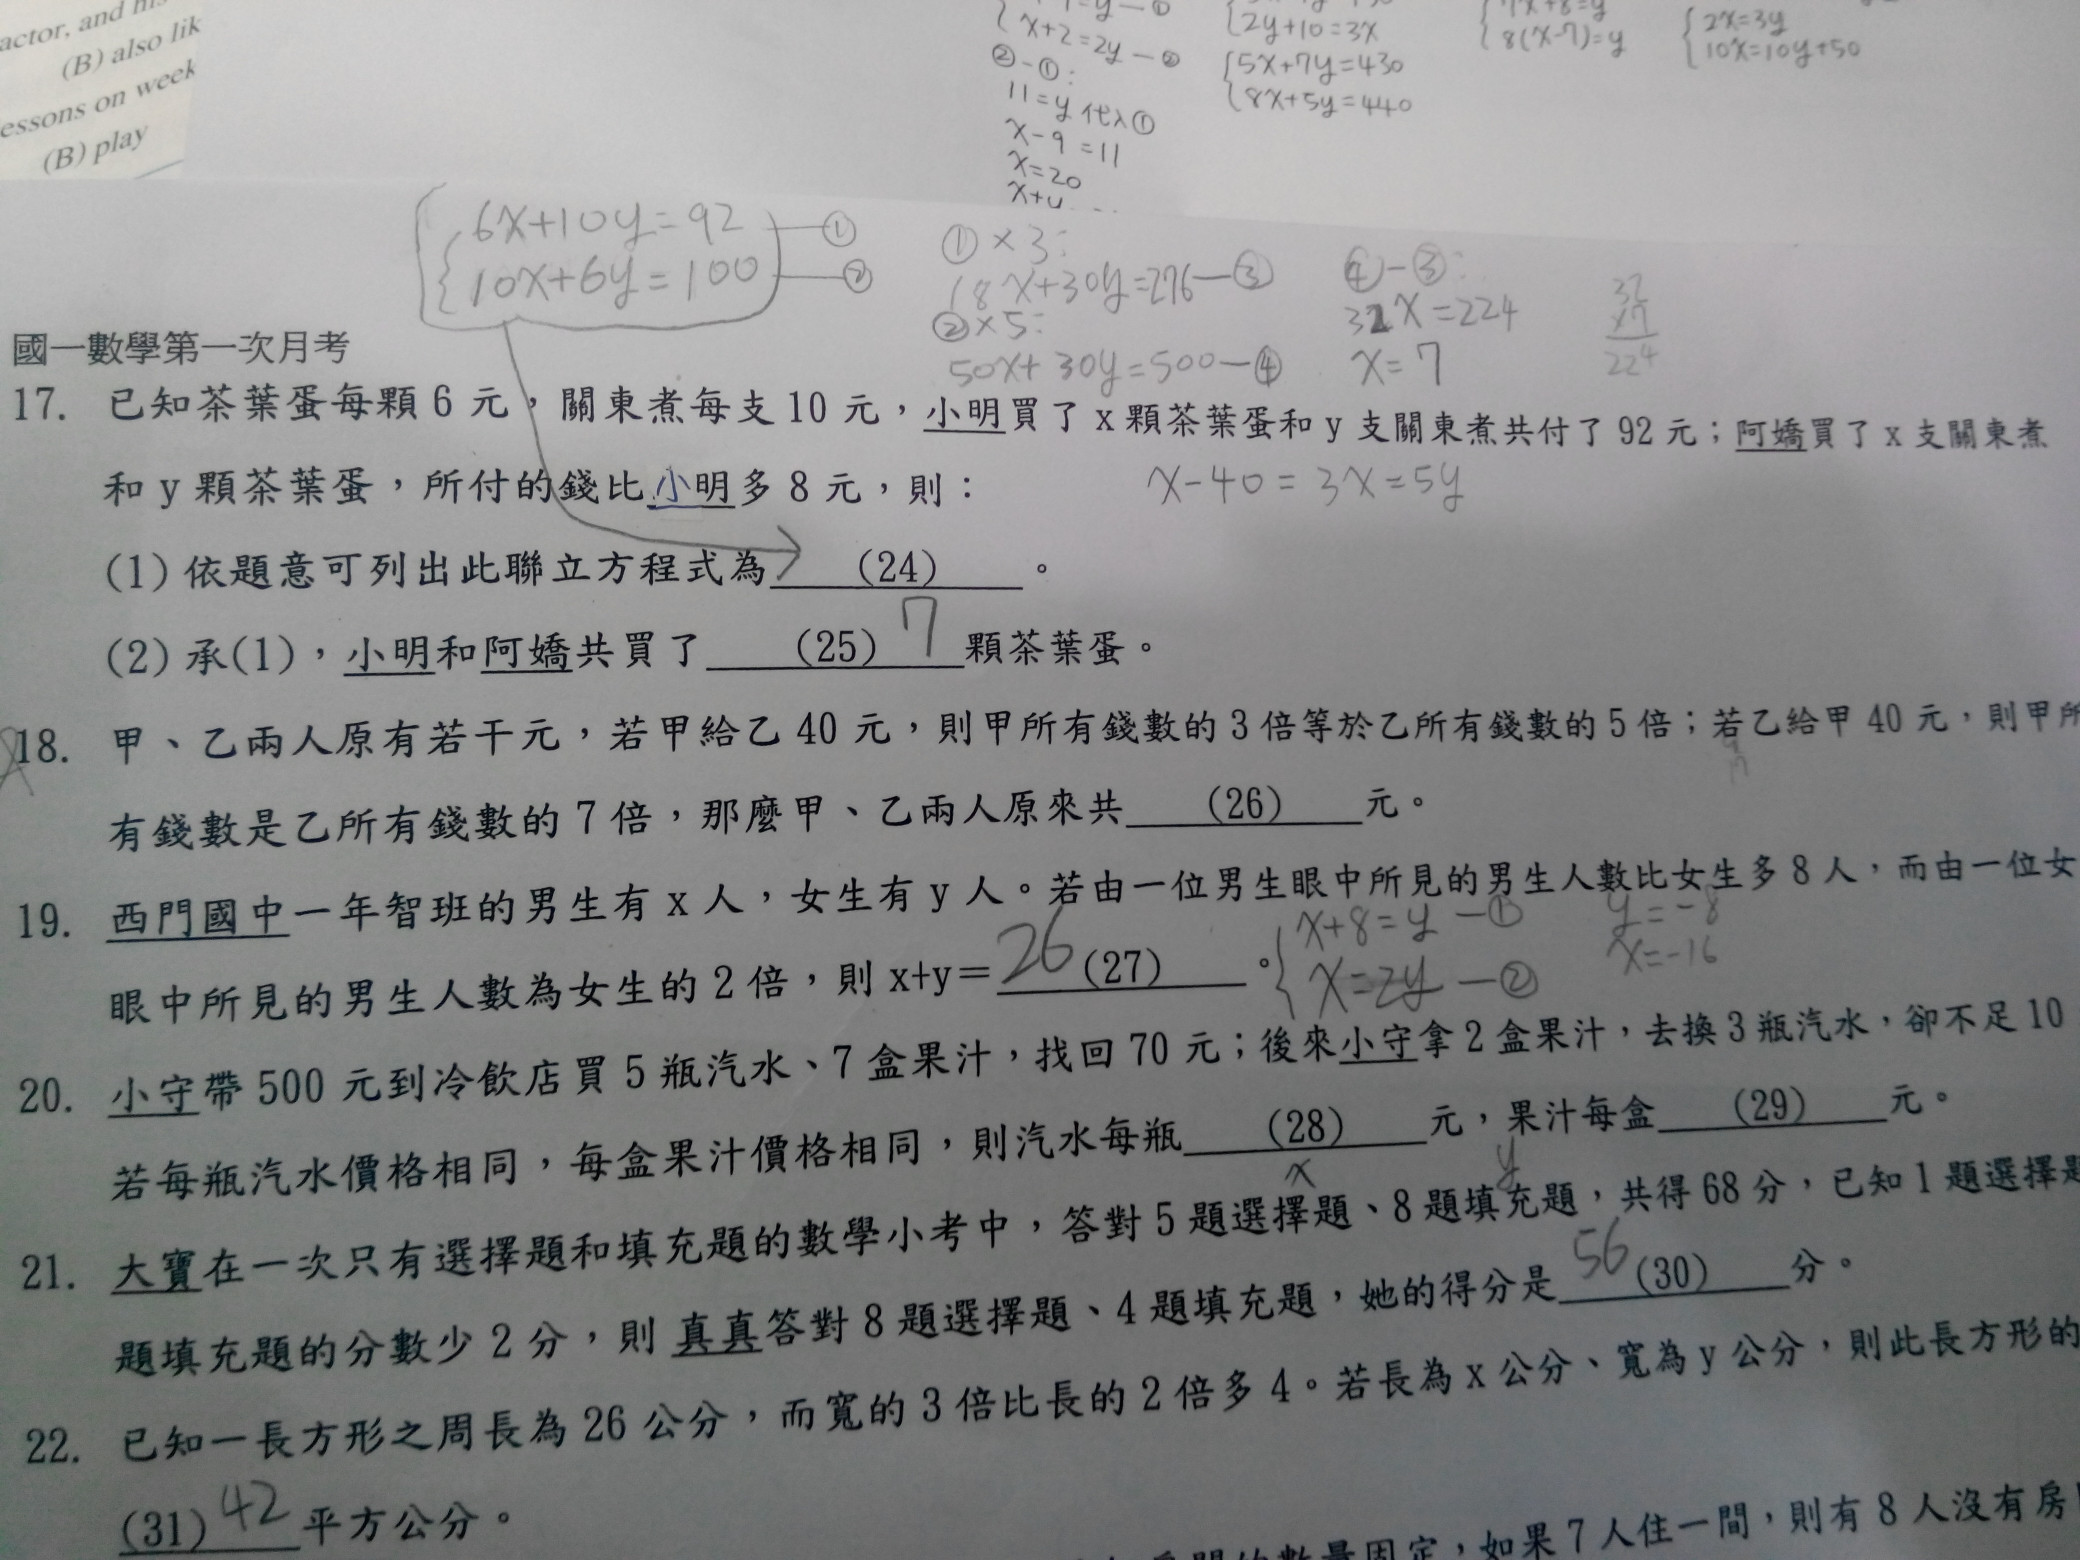 actor, and
(B) also lik
essons on week
(B) play
x+2=2y—②
②-①:
11=y 代入①
x-9=11
x=20
x+y
2y+10=3x
5x+7y=430
8x+5y=440
7x+8=y
8(x-7)=y
2x=3y
10x=10y+50
6x+10y=92 —①
10x+6y=100 —②
①×3:
18x+30y=276—③
②×5:
50x+30y=500—④
④-③:
32x=224
x=7
32
×7
224
國一數學第一次月考
17. 已知茶葉蛋每顆 6 元，關東煮每支 10 元，小明買了 x 顆茶葉蛋和 y 支關東煮共付了 92 元；阿嬌買了 x 支關東煮
和 y 顆茶葉蛋，所付的錢比小明多 8 元，則：
x-40=3x=5y
(1) 依題意可列出此聯立方程式為 (24) 。
(2) 承(1)，小明和阿嬌共買了 (25) 7 顆茶葉蛋。
18. 甲、乙兩人原有若干元，若甲給乙 40 元，則甲所有錢數的 3 倍等於乙所有錢數的 5 倍；若乙給甲 40 元，則甲所
有錢數是乙所有錢數的 7 倍，那麼甲、乙兩人原來共 (26) 元。
19. 西門國中一年智班的男生有 x 人，女生有 y 人。若由一位男生眼中所見的男生人數比女生多 8 人，而由一位女
x+8=y —①
y=-8
眼中所見的男生人數為女生的 2 倍，則 x+y= 26 (27) 。
x=2y —②
x=-16
20. 小守帶 500 元到冷飲店買 5 瓶汽水、7 盒果汁，找回 70 元；後來小守拿 2 盒果汁，去換 3 瓶汽水，卻不足 10
若每瓶汽水價格相同，每盒果汁價格相同，則汽水每瓶 (28) 元，果汁每盒 (29) 元。
x y
21. 大寶在一次只有選擇題和填充題的數學小考中，答對 5 題選擇題、8 題填充題，共得 68 分，已知 1 題選擇題
題填充題的分數少 2 分，則 真真答對 8 題選擇題、4 題填充題，她的得分是 56 (30) 分。
22. 已知一長方形之周長為 26 公分，而寬的 3 倍比長的 2 倍多 4。若長為 x 公分、寬為 y 公分，則此長方形的
(31) 42 平方公分。
的數量固定，如果 7 人住一間，則有 8 人沒有房